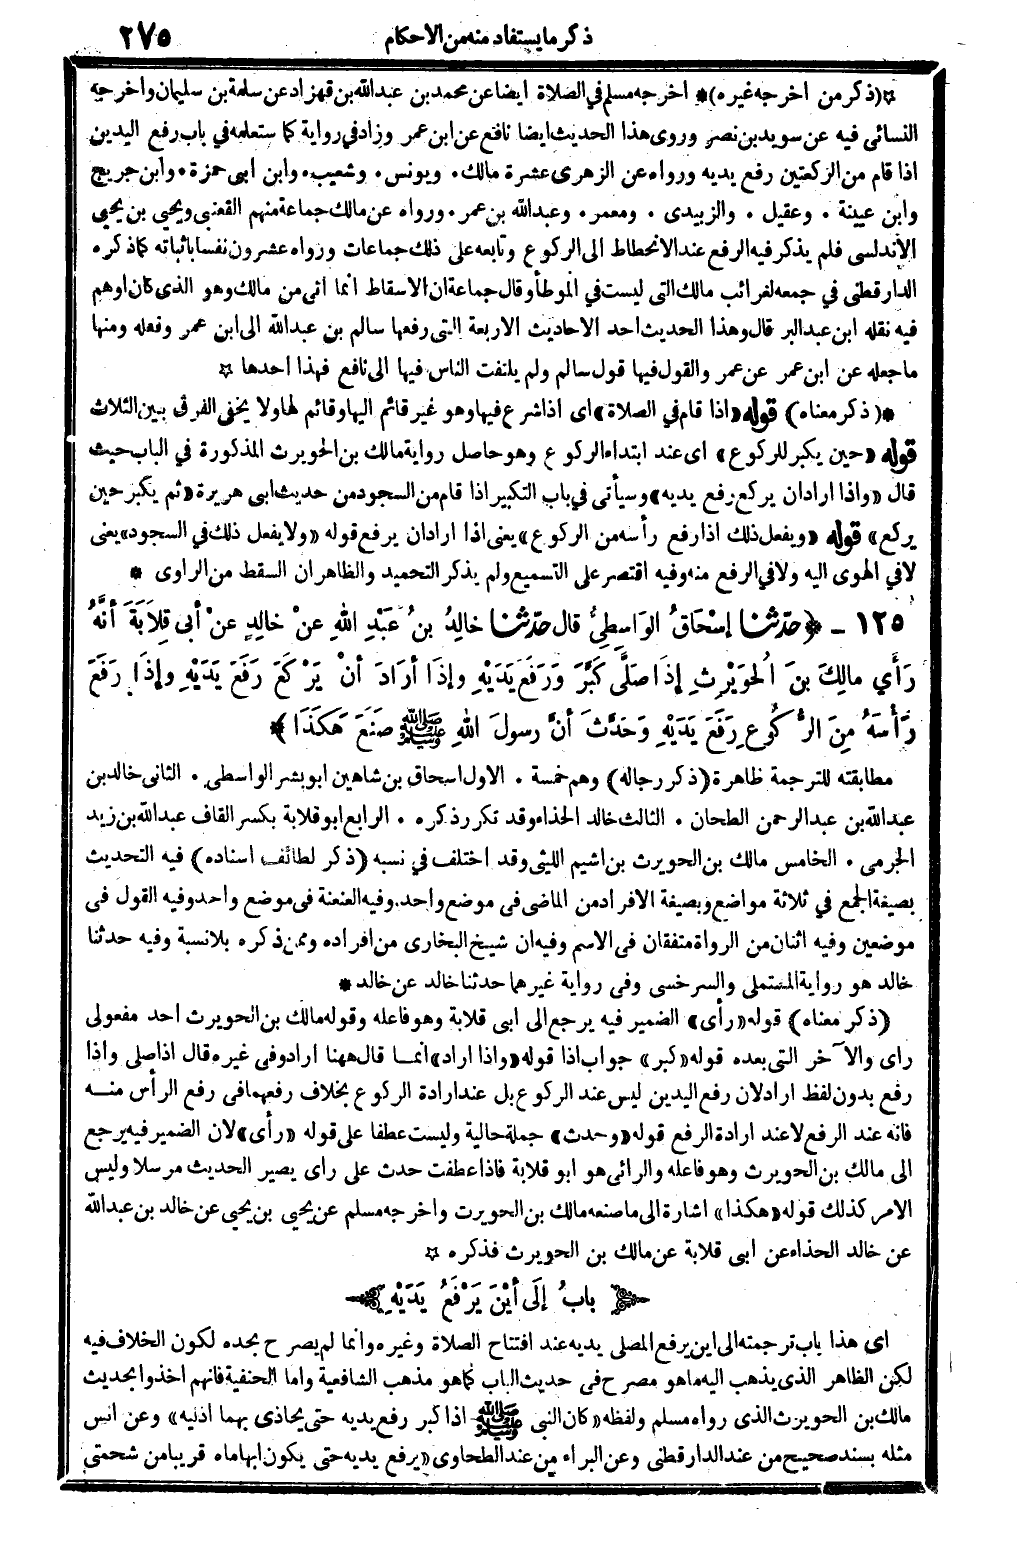 ذكر ما يستفاد منه من الاحكام ٢٧٥
☆ (ذكر من اخرجه غيره) * اخرجه مسلم في الصلاة ايضا عن محمد بن عبدالله بن قهزاد عن سلمة بن سليمان واخرجه
النسائى فيه عن سويد بن نصر وروى هذا الحديث ايضا نافع عن ابن عمر وزاد في رواية كما ستعلمه في باب رفع اليدين
اذا قام من الركعتين رفع يديه ورواه عن الزهرى عشرة مالك . ويونس . وشعيب . وابن ابى حمزة . وابن جريج
وابن عيينة . وعقيل . والزبيدى . ومعمر . وعبدالله بن عمر . ورواه عن مالك جماعة منهم القعنبى ويحيى بن يحيى
الاندلسى فلم يذكر فيه الرفع عند الانحطاط الى الركوع وتابعه على ذلك جماعات ورواه عشرون نفسا باثباته كما ذكره
الدارقطنى في جمعه لغرائب مالك التى ليست في الموطأ وقال جماعة ان الاسقاط انما اتى من مالك وهو الذى كان اوهم
فيه نقله ابن عبدالبر قال وهذا الحديث احد الاحاديث الاربعة التى رفعها سالم بن عبدالله الى ابن عمر وفعله ومنها
ما جعله عن ابن عمر عن عمر والقول فيها قول سالم ولم يلتفت الناس فيها الى نافع فهذا احدها ☆
* (ذكر معناه) قوله «اذا قام في الصلاة» اى اذا شرع فيها وهو غير قائم اليها وقائم لها ولا يخفى الفرق بين الثلاث
قوله «حين يكبر للركوع» اى عند ابتداء الركوع وهو حاصل رواية مالك بن الحويرث المذكورة في الباب حيث
قال «واذا اراد ان يركع رفع يديه» وسيأتى في باب التكبير اذا قام من السجود من حديث ابى هريرة «ثم يكبر حين
يركع» قوله «ويفعل ذلك اذا رفع رأسه من الركوع» يعنى اذا اراد ان يرفع قوله «ولا يفعل ذلك في السجود» يعنى
لا في الهوى اليه ولا في الرفع منه وفيه اقتصر على التسميع ولم يذكر التحميد والظاهر ان السقط من الراوى *
١٢٥ - ﴿حدّثنا إسْحَاقُ الوَاسِطِىُّ قال حدّثنا خالِدُ بنُ عَبْدِ اللهِ عنْ خالِدٍ عنْ أبى قِلاَبَةَ أنَّهُ
رَأَي مالِكَ بنَ الحُوَيْرِثِ إذَا صَلَّى كَبَّرَ وَرَفَعَ يَدَيْهِ وإذَا أرَادَ أنْ يَرْكَعَ رَفَعَ يَدَيْهِ وإذَا رَفَعَ
رَأْسَهُ مِنَ الرُّكُوعِ رَفَعَ يَدَيْهِ وَحَدَّثَ أنَّ رسولَ اللهِ ﷺ صَنَعَ هَكَذَا ﴾
مطابقته للترجمة ظاهرة (ذكر رجاله) وهم خمسة . الاول اسحاق بن شاهين ابو بشر الواسطى . الثانى خالد بن
عبدالله بن عبدالرحمن الطحان . الثالث خالد الحذاء وقد تكرر ذكره . الرابع ابو قلابة بكسر القاف عبدالله بن زيد
الجرمى . الخامس مالك بن الحويرث بن اشيم الليثى وقد اختلف في نسبه (ذكر لطائف اسناده) فيه التحديث
بصيغة الجمع في ثلاثة مواضع وبصيغة الافراد من الماضى فى موضع واحد. وفيه العنعنة فى موضع واحد وفيه القول فى
موضعين وفيه اثنان من الرواة متفقان فى الاسم وفيه ان شيخ البخارى من افراده وممن ذكره بلا نسبة وفيه حدثنا
خالد هو رواية المستملى والسرخسى وفى رواية غيرهما حدثنا خالد عن خالد *
(ذكر معناه) قوله «رأى» الضمير فيه يرجع الى ابى قلابة وهو فاعله وقوله مالك بن الحويرث احد مفعولى
راى والآخر التى بعده قوله «كبر» جواب اذا قوله «واذا اراد» انما قال ههنا اراد وفى غيره قال اذا صلى واذا
رفع بدون لفظ اراد لان رفع اليدين ليس عند الركوع بل عند ارادة الركوع بخلاف رفعهما فى رفع الرأس منه
فانه عند الرفع لا عند ارادة الرفع قوله «وحدث» جملة حالية وليست عطفا على قوله «رأى» لان الضمير فيه يرجع
الى مالك بن الحويرث وهو فاعله والرائى هو ابو قلابة فاذا عطفت حدث على راى يصير الحديث مرسلا وليس
الامر كذلك قوله «هكذا» اشارة الى ما صنعه مالك بن الحويرث واخرجه مسلم عن يحيى بن يحيى عن خالد بن عبدالله
عن خالد الحذاء عن ابى قلابة عن مالك بن الحويرث فذكره ☆
بابُ إلَى أيْنَ يَرْفَعُ يَدَيْهِ
اى هذا باب ترجمته الى اين يرفع المصلى يديه عند افتتاح الصلاة وغيره وانما لم يصرح بحده لكون الخلاف فيه
لكن الظاهر الذى يذهب اليه ما هو مصرح فى حديث الباب كما هو مذهب الشافعية واما الحنفية فانهم اخذوا بحديث
مالك بن الحويرث الذى رواه مسلم ولفظه «كان النبى ﷺ اذا كبر رفع يديه حتى يحاذى بهما اذنيه» وعن انس
مثله بسند صحيح من عند الدارقطنى وعن البراء من عند الطحاوى «يرفع يديه حتى يكون ابهاماه قريبا من شحمتى